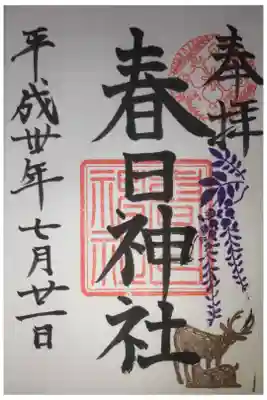 奉拝
春日神社
平成卅年七月廿一日